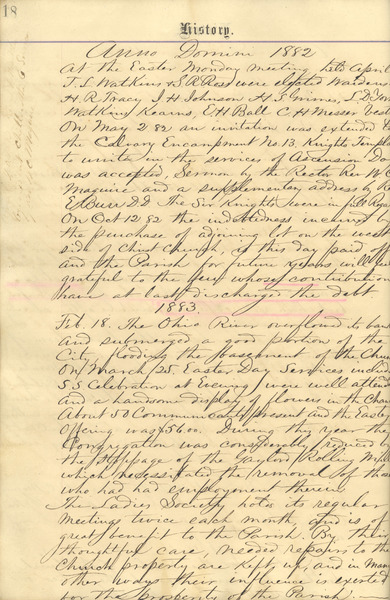 18
History.
Anno Domini 1882
At the Easter Monday meeting held April
T. S. Watkins & S R Ross were elected Wardens
H. R. Tracy, J H Johnson H. S. Grimes, L D
Watkins Kearns, E H Ball C H Messer Vest
On May 2 82 an invitation was extended to
the Calvary Encampment No 13, Knights Templ
to unite in the services of Ascension Da
was accepted, Sermon by the Rector Rev W C
Maguire and a supplementary address by Re
E Burr DD The Sir Knights were in full Rega
On Oct 12 82 the indebtedness incurred by
the purchase of adjoining lot on the west
side of Christ Church, is this day paid off
and the Parish for future years will be
grateful to the few whose contribution
have at last discharged the debt
1883
Feb. 18. The Ohio River overflowed its ban
and submerged a good portion of the
City, flooding the basement of the Chur
On March 25 Easter Day Services includ
S S Celebration at Evening were well attend
and a handsome display of flowers in the Chan
About 50 Communicants present and the Easter
Offering was $56.00. During the year the
Congregation was considerably reduced by
the stoppage of the Gaylord Rolling Mill
which necessitated the removal of those
who had had employment therein
The Ladies Society holds its regular
Meetings twice each month, and is of
great benefit to the Parish. By their
thoughtful care, needed repairs to the
Church property are kept up, and in many
other ways their influence is exerted
for the prosperity of the Parish.